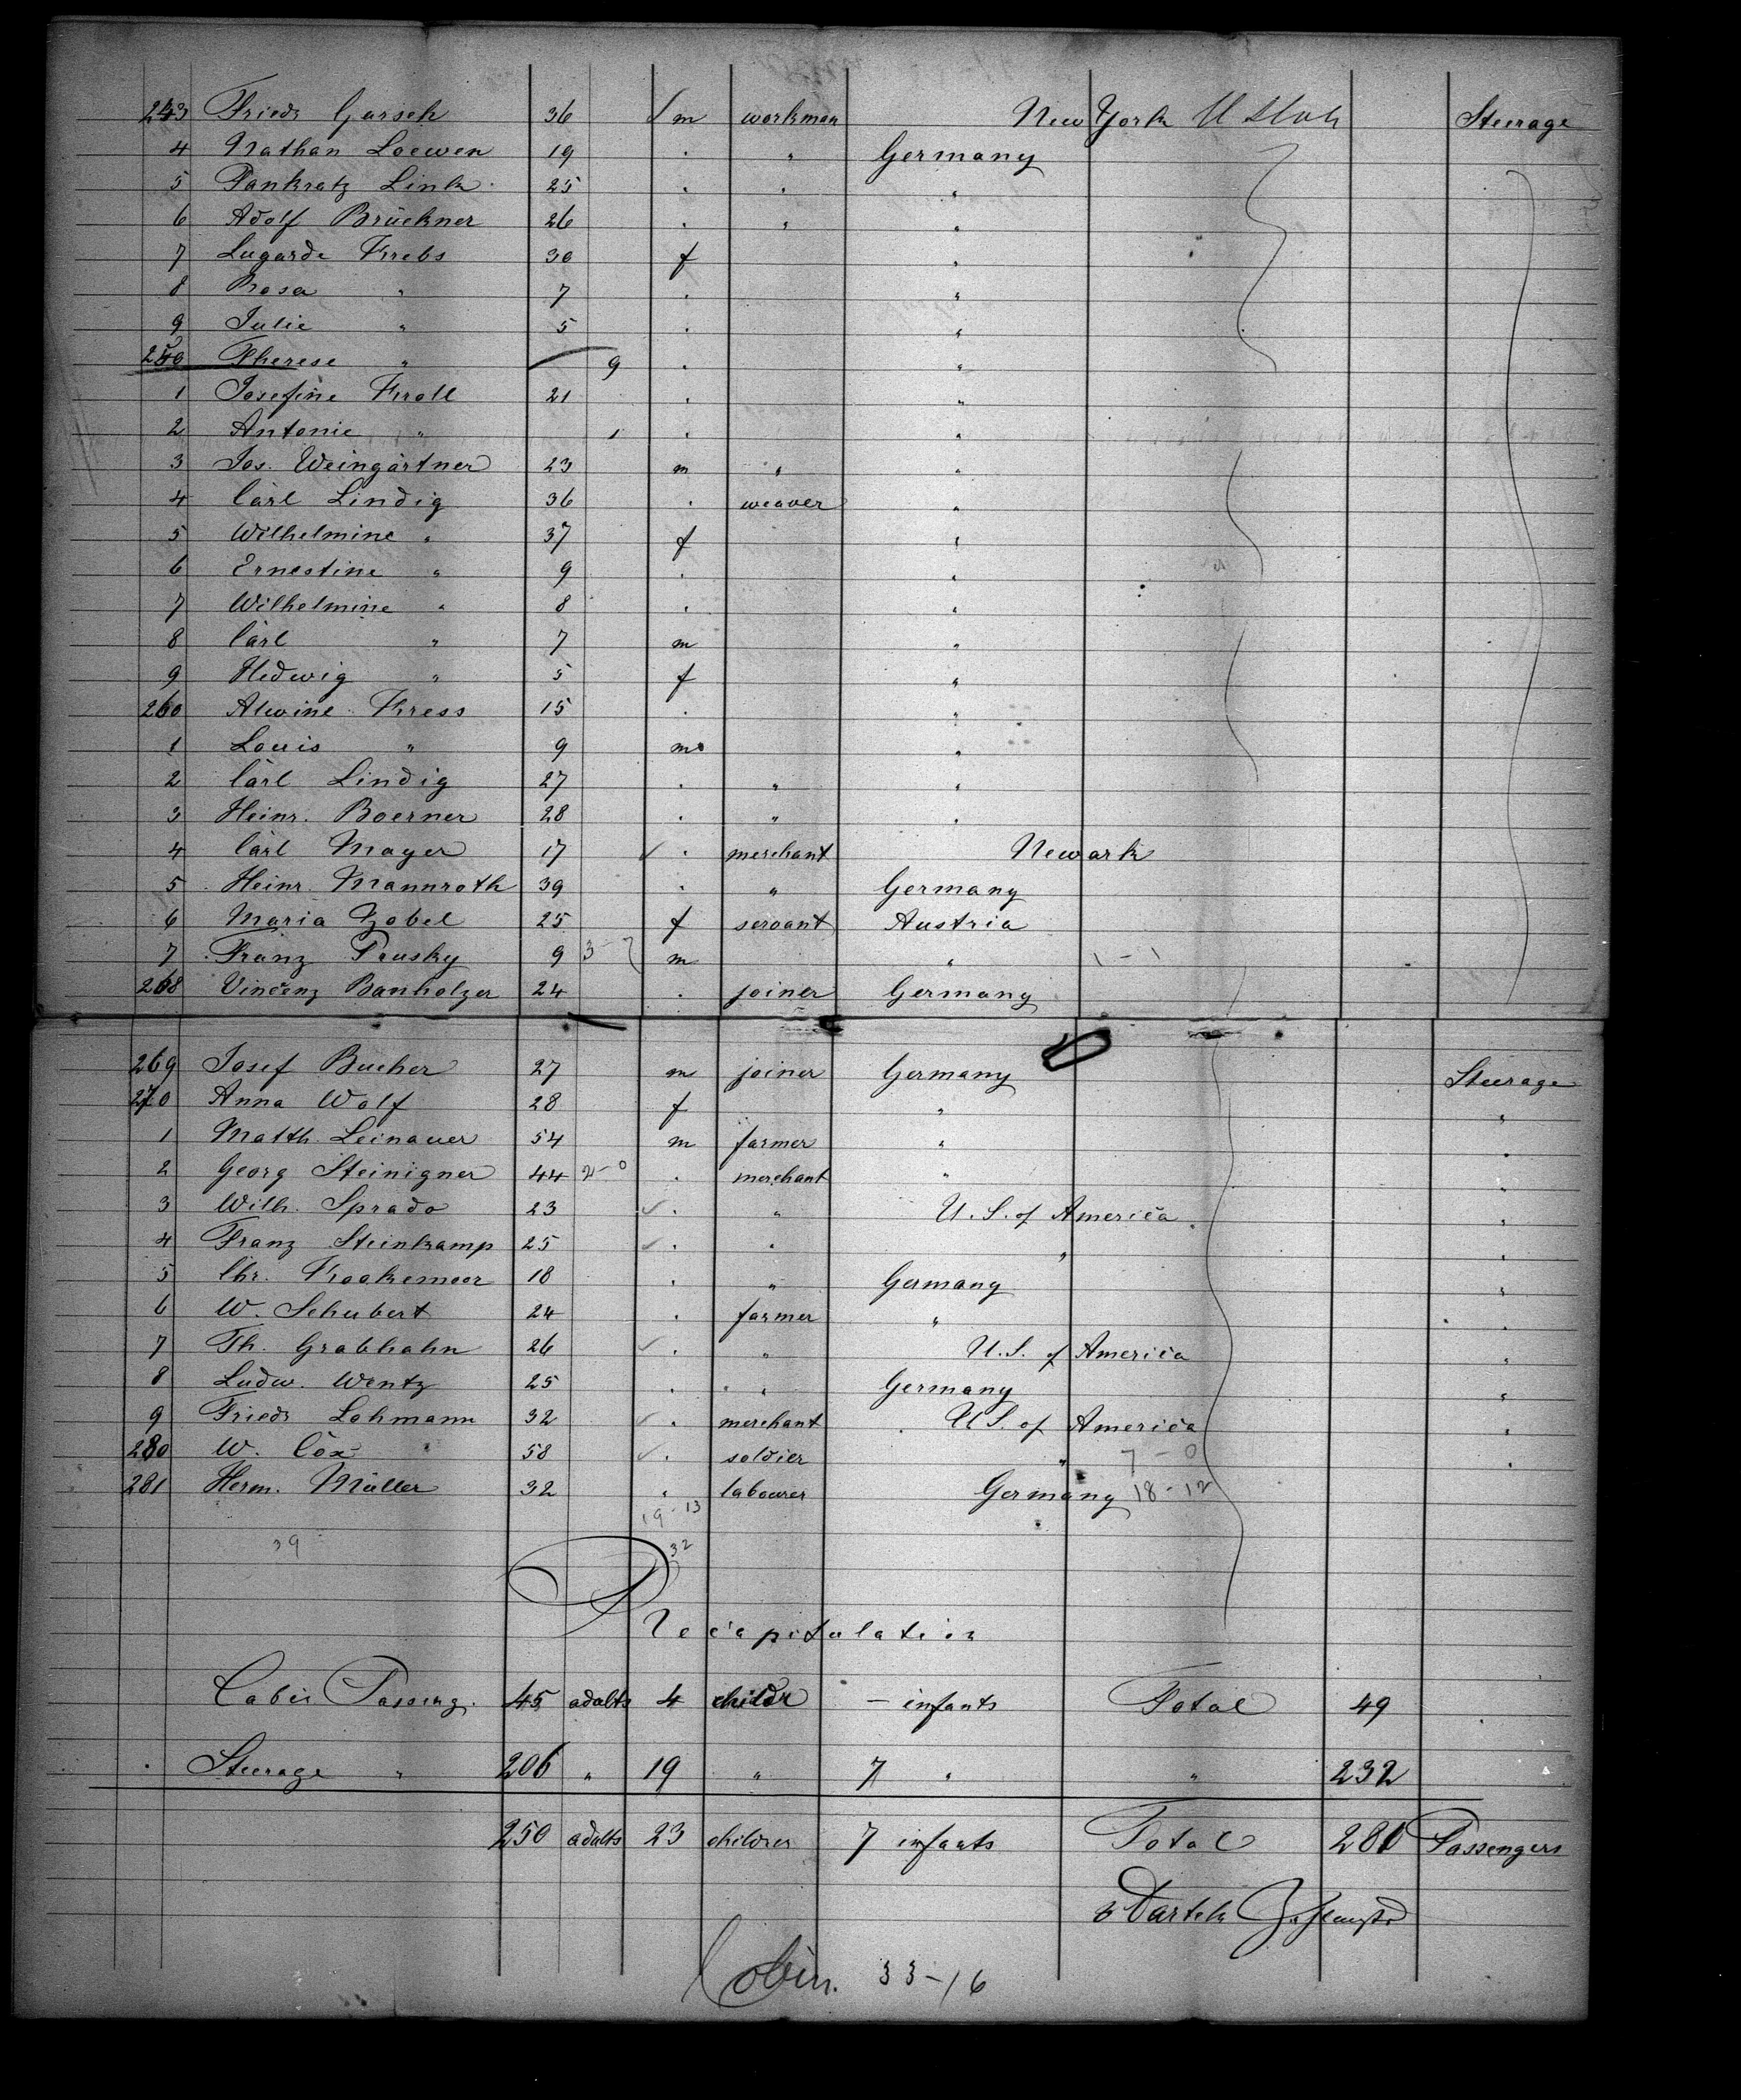 243 Friedr Garsch 36 m workman New York Steerage
4 Nathan Loewen 19 . " Germany
5 Pankratz Link 25 . " "
6 Adolf Brückner 26 . " "
7 Lugarde Krebs 30 f "
8 Rosa " 7 . "
9 Julie " 5 . "
250 Therese " 9 . "
1 Josefine Kroll 21 . "
2 Antonie " 1 . "
3 Jos. Weingärtner 23 m " "
4 Carl Lindig 36 . weaver "
5 Wilhelmine " 37 f "
6 Ernestine " 9 . "
7 Wilhelmine " 8 . "
8 Carl " 7 m "
9 Hedwig " 5 f "
260 Alwine Kress 15 . "
1 Louis " 9 m "
2 Carl Lindig 27 . " "
3 Heinr. Boerner 28 . " "
4 Carl Mayer 17 . merchant Newark
5 Heinr. Mannroth 39 . " Germany
6 Maria Zobel 25 f servant Austria
7 Franz Prusky 9 3-7 m " 1-1
268 Vincenz Banholzer 24 . joiner Germany
269 Josef Bucher 27 m joiner Germany Steerage
270 Anna Wolf 28 f " "
1 Matth. Leinauer 54 m farmer " "
2 Georg Steinigner 44 2-0 . merchant " "
3 Wilh. Sprado 23 . " U.S. of America "
4 Franz Steinkamp 25 . " " "
5 Chr. Kookemoor 18 . " Germany "
6 W. Schubert 24 . farmer " "
7 Th. Grabhahn 26 . " U.S. of America "
8 Ludw. Wentz 25 . " Germany "
9 Friedr Lohmann 32 . merchant U.S. of America "
280 W. Cox 58 . soldier " 7-0 "
281 Herm. Müller 32 . labourer Germany 18-12
19-13
39 32
Recapitulation
Cabin Passeng. 45 adults 4 childr — infants Total 49
Steerage " 206 " 19 " 7 " " 232
250 adults 23 children 7 infants Total 280 Passengers
Cabin. 33-16